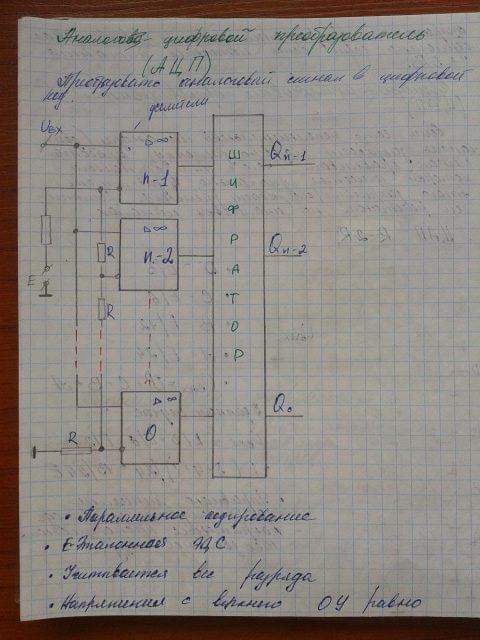 Аналогово-цифровой преобразователь
(АЦП)
Преобразовать аналоговый сигнал в цифровой
код.
делители
Uвх
▷∞
n-1
Qn-1
▷∞
n-2
Qn-2
R
E
R
ШИФРАТОР
▷∞
0
Q0
R
• Параллельное кодирование
• E-Эталонная ЭДС
• Учитывается вес разряда
• Напряжения с верхнего ОУ равно